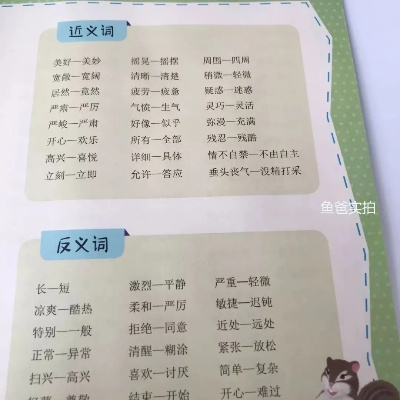 近义词
美好—美妙 摇晃—摇摆 周围—四周
宽敞—宽阔 清晰—清楚 稍微—轻微
居然—竟然 疲劳—疲惫 疑惑—迷惑
严肃—严厉 气愤—生气 灵巧—灵活
严峻—严肃 好像—似乎 弥漫—充满
开心—欢乐 所有—全部 残忍—残酷
高兴—喜悦 详细—具体 情不自禁—不由自主
立刻—立即 允许—答应 垂头丧气—没精打采
鱼爸实拍
反义词
长—短 激烈—平静 严重—轻微
凉爽—酷热 柔和—严厉 敏捷—迟钝
特别—一般 拒绝—同意 近处—远处
正常—异常 清醒—糊涂 紧张—放松
扫兴—高兴 喜欢—讨厌 简单—复杂
结束—开始 开心—难过